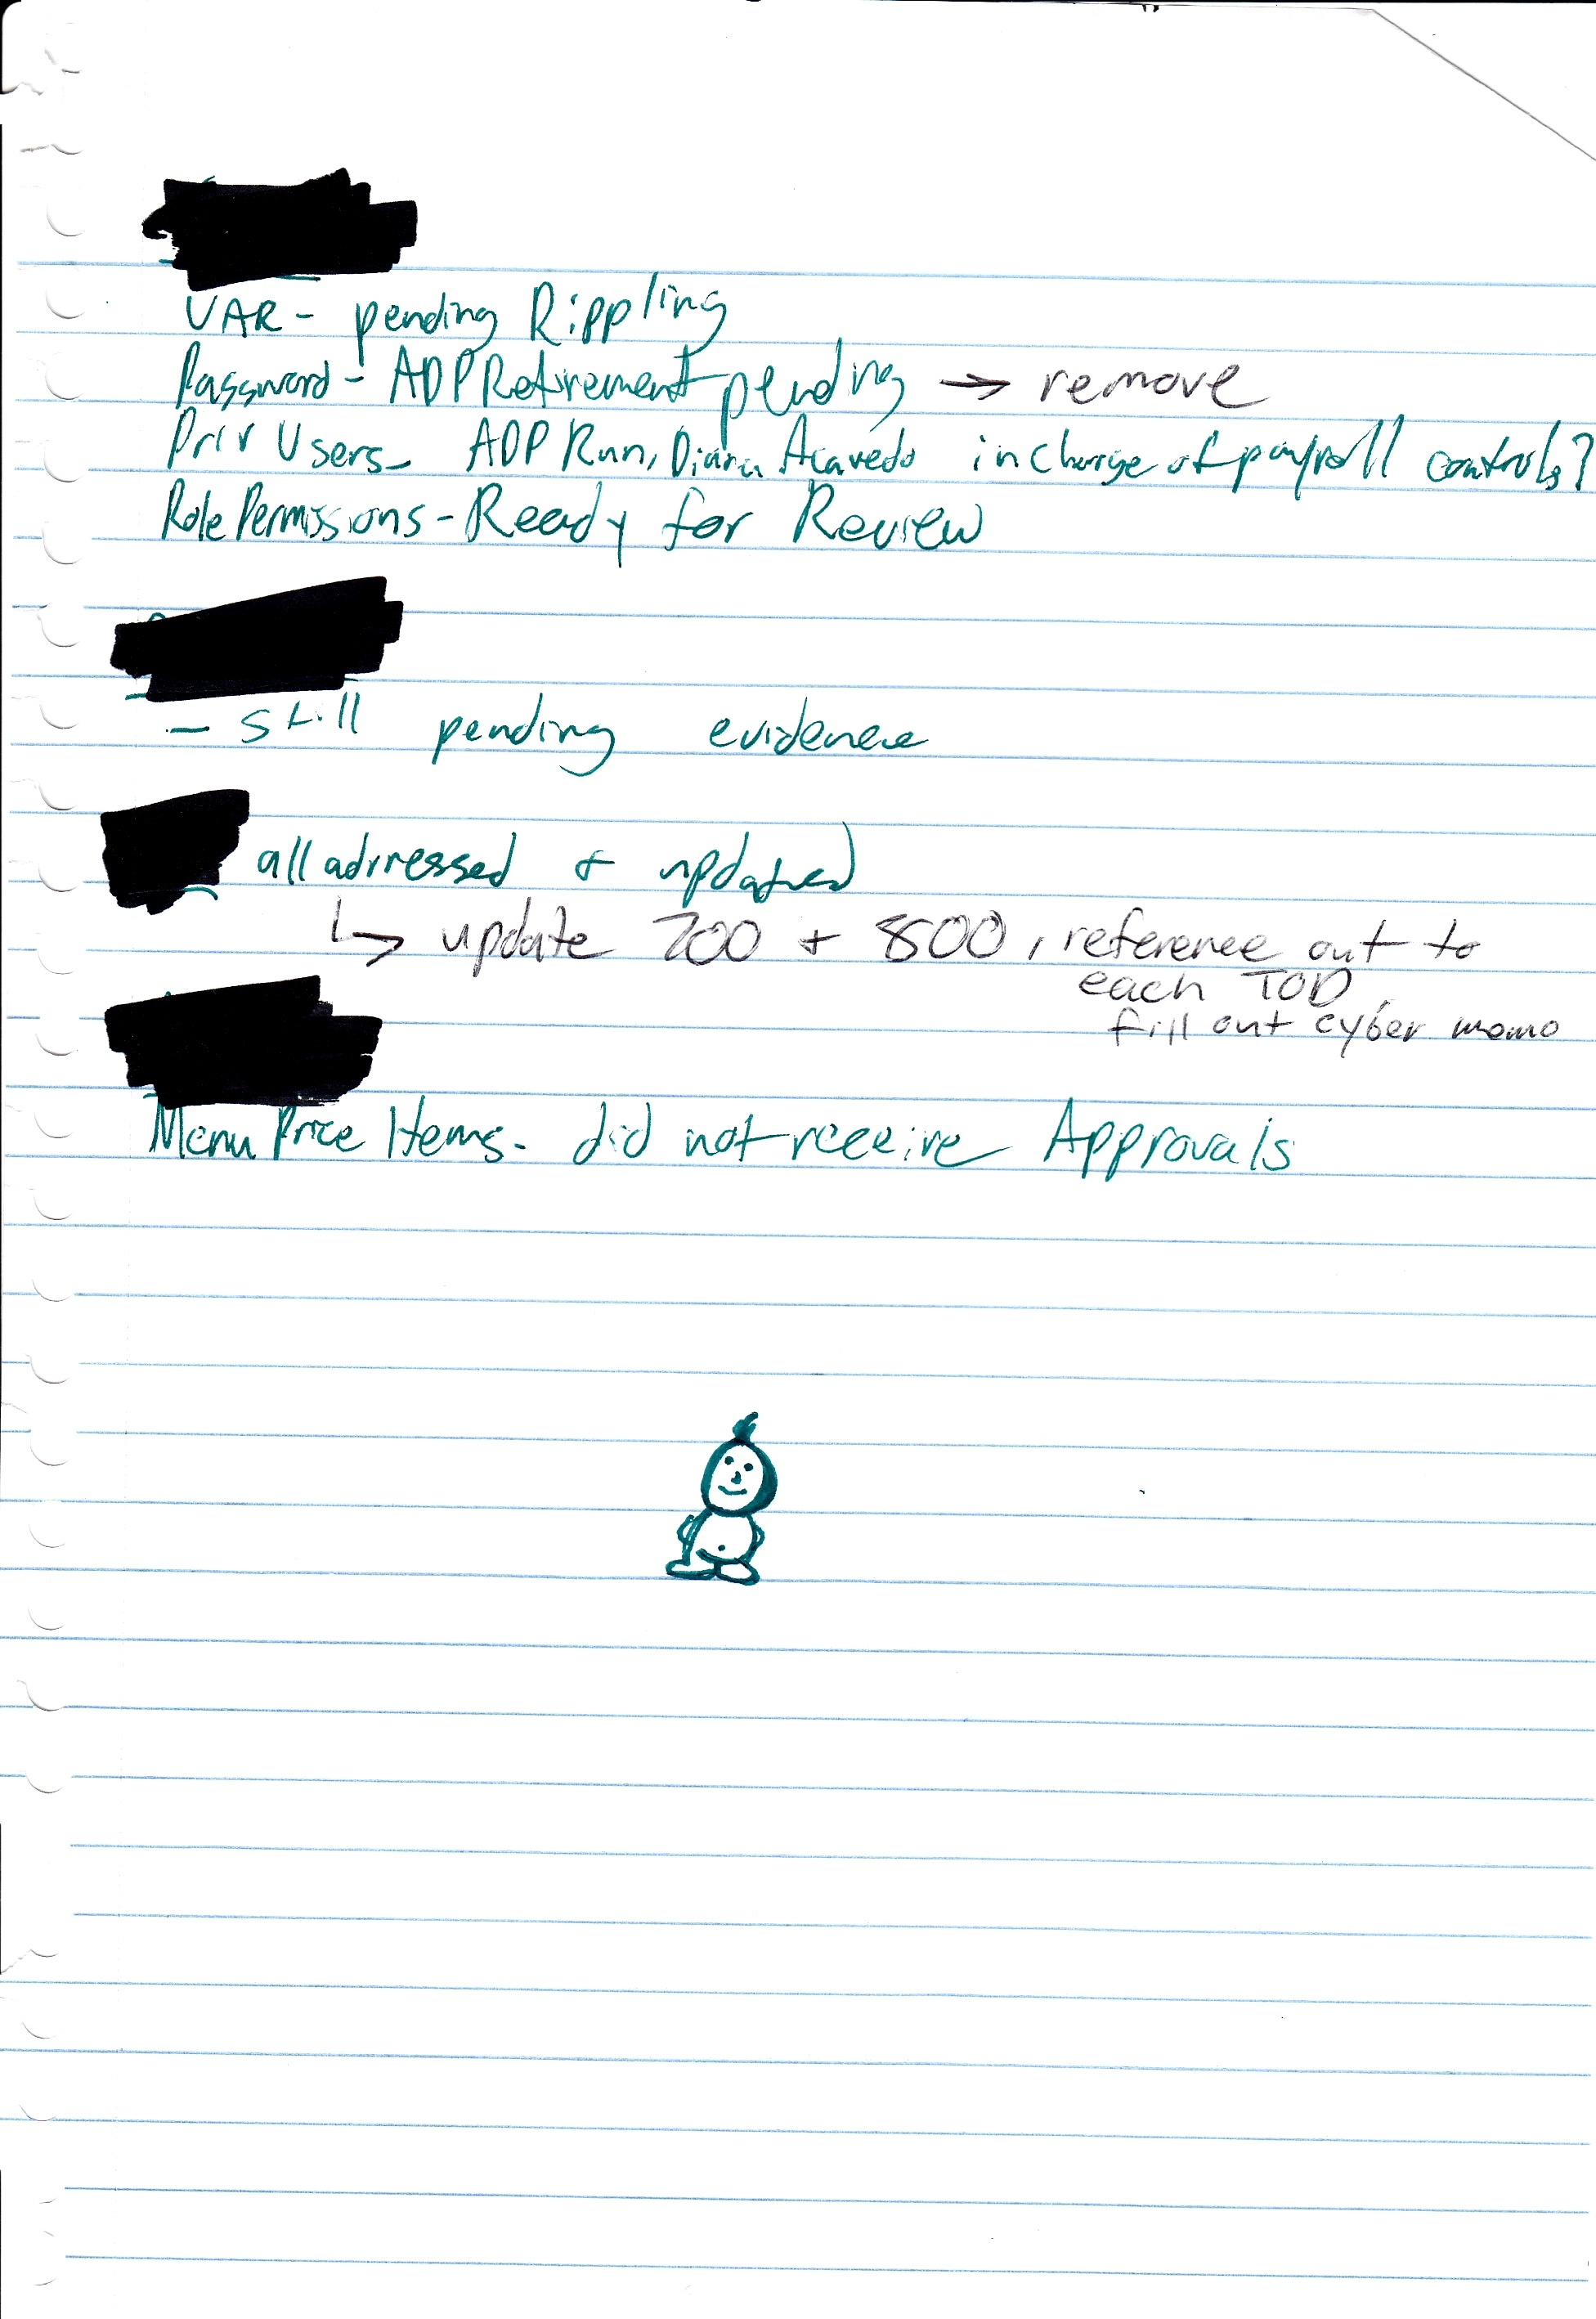 UAR - pending Rippling
Password - ADP Retirement pending → remove
Priv Users - ADP Run, Diana Acavedo in charge of payroll controls?
Role Permissions - Ready for Review
- still pending evidence
all adrressed + updated
↳ update 700 + 800, reference out to
each TOD,
fill out cyber memo
Menu Price Items - did not receive Approvals